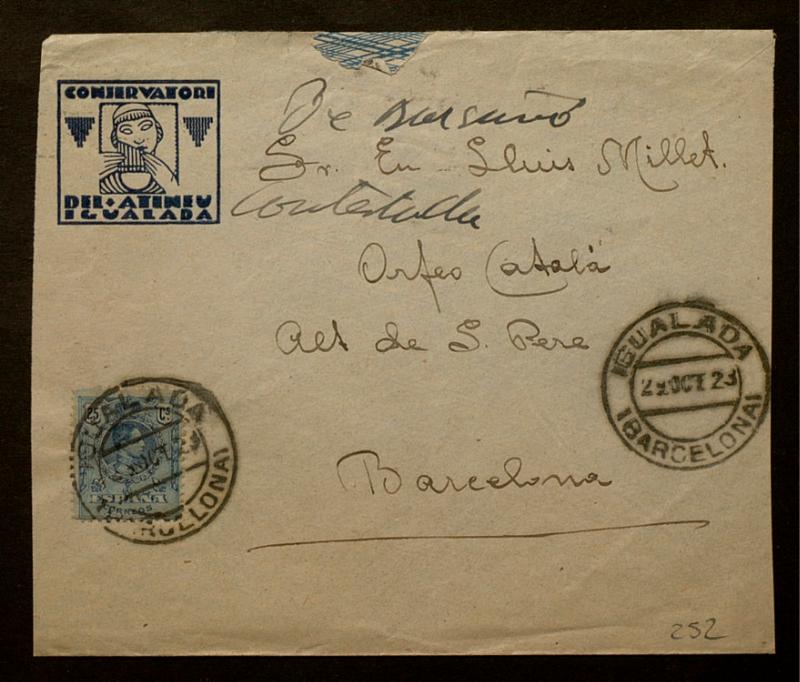 CONSERVATORI
DEL·ATENEU
IGUALADA
De
Sr. En Lluis Millet.
Contestada
Orfeo Català
Alt de S. Pere
Barcelona
IGUALADA
29 OCT 23
(BARCELONA)
IGUALADA
OCT
BARCELONA)
25 Cs
ESPAÑA
CORREOS
252